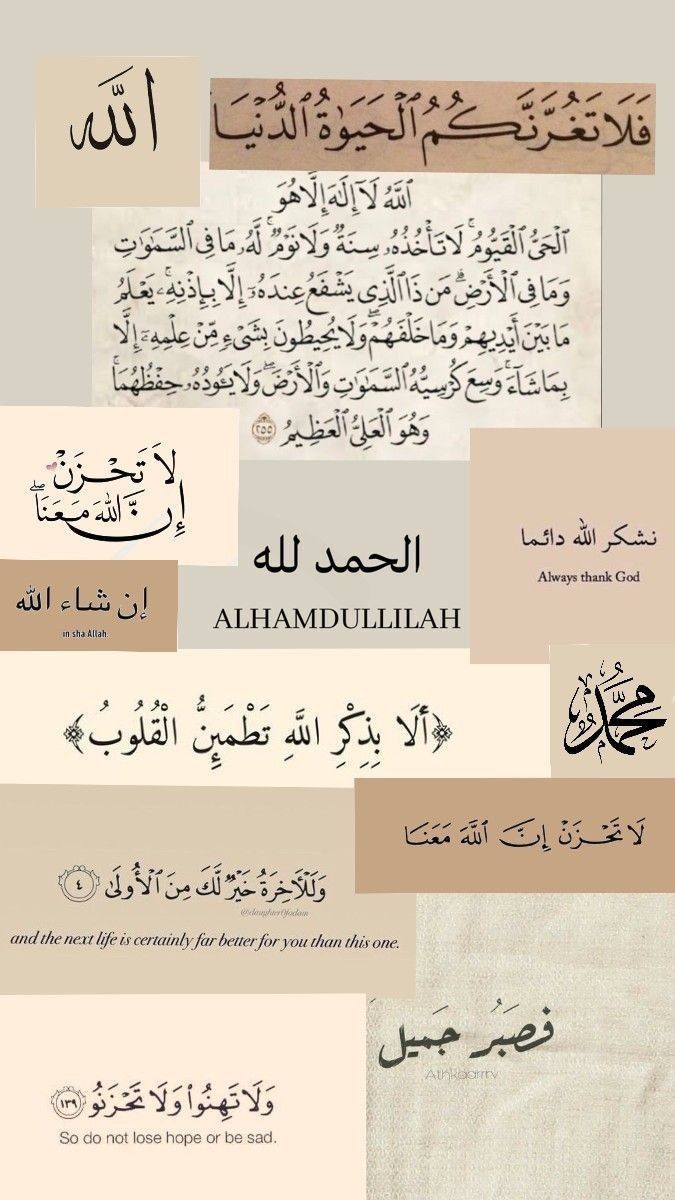 الله
فَلَا تَغُرَّنَّكُمُ ٱلْحَيَوٰةُ ٱلدُّنْيَا
ٱللَّهُ لَآ إِلَٰهَ إِلَّا هُوَ
ٱلْحَىُّ ٱلْقَيُّومُ ۚ لَا تَأْخُذُهُۥ سِنَةٌ وَلَا نَوْمٌ ۚ لَّهُۥ مَا فِى ٱلسَّمَٰوَٰتِ
وَمَا فِى ٱلْأَرْضِ ۗ مَن ذَا ٱلَّذِى يَشْفَعُ عِندَهُۥٓ إِلَّا بِإِذْنِهِۦ ۚ يَعْلَمُ
مَا بَيْنَ أَيْدِيهِمْ وَمَا خَلْفَهُمْ ۖ وَلَا يُحِيطُونَ بِشَىْءٍ مِّنْ عِلْمِهِۦٓ إِلَّا
بِمَا شَآءَ ۚ وَسِعَ كُرْسِيُّهُ ٱلسَّمَٰوَٰتِ وَٱلْأَرْضَ ۖ وَلَا يَـُٔودُهُۥ حِفْظُهُمَا ۚ
وَهُوَ ٱلْعَلِىُّ ٱلْعَظِيمُ ٢٥٥
لَا تَحْزَنْ
إِنَّ اللَّهَ مَعَنَا ۖ
نشكر الله دائما
Always thank God
الحمد لله
ALHAMDULLILAH
إن شاء الله
in sha Allah.
مُحَمَّد
﴿أَلَا بِذِكْرِ اللَّهِ تَطْمَئِنُّ الْقُلُوبُ﴾
لَا تَحْزَنْ إِنَّ ٱللَّهَ مَعَنَا
وَلَلْأَخِرَةُ خَيْرٌ لَّكَ مِنَ ٱلْأُولَىٰ ٤
@daughter0fadam
and the next life is certainly far better for you than this one.
فَصَبْرٌ جَمِيل
Athkaarrrv
وَلَا تَهِنُوا۟ وَلَا تَحْزَنُو ١٣٩
So do not lose hope or be sad.